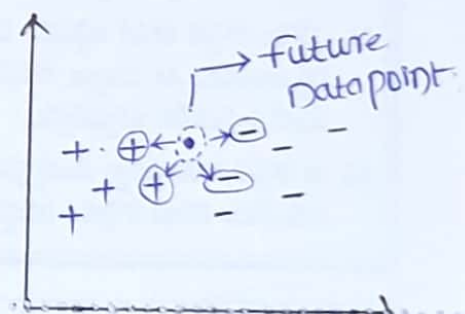 future
Datapoint